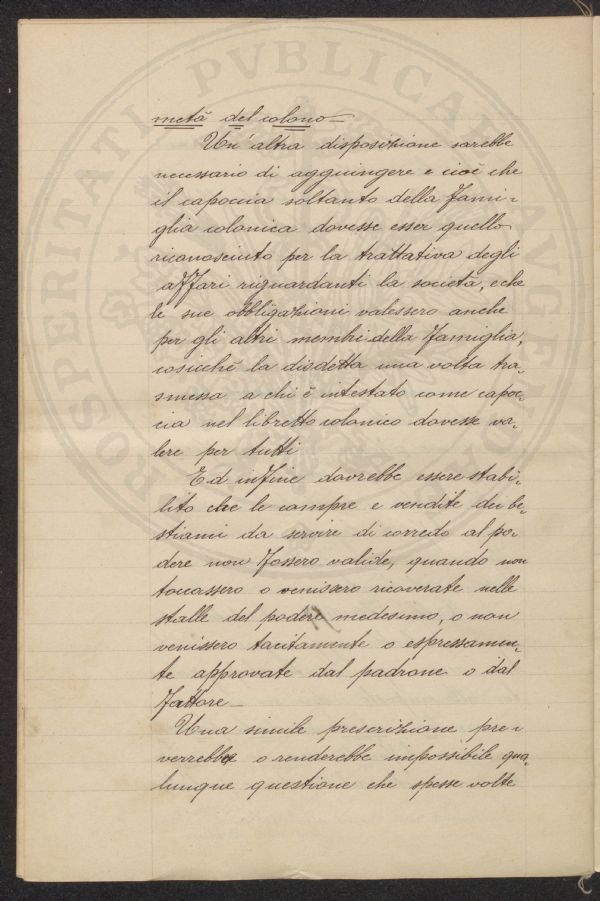 metà del colono —
Un'altra disposizione sarebbe
necessario di aggiungere e cioè che
il capoccia soltanto della fami-
glia colonica dovesse esser quello
riconosciuto per la trattativa degli
affari riguardanti la società, e che
le sue obbligazioni valessero anche
per gli altri membri della famiglia,
cosicchè la disdetta una volta tra-
smessa a chi è intestato come capoc-
cia nel libretto colonico dovesse va-
lere per tutti
Ed infine dovrebbe essere stabi-
lito che le compre e vendite dei be-
stiami da servire di corredo al po-
dere non fossero valide, quando non
toccassero o venissero ricoverate nelle
stalle del podere medesimo, o non
venissero tacitamente o espressamen-
te approvate dal padrone o dal
fattore —
Una simile prescrizione pre-
verrebbe o renderebbe impossibile qua-
lunque questione che spesse volte
PROSPERITATI PVBLICAE AVGENDAE